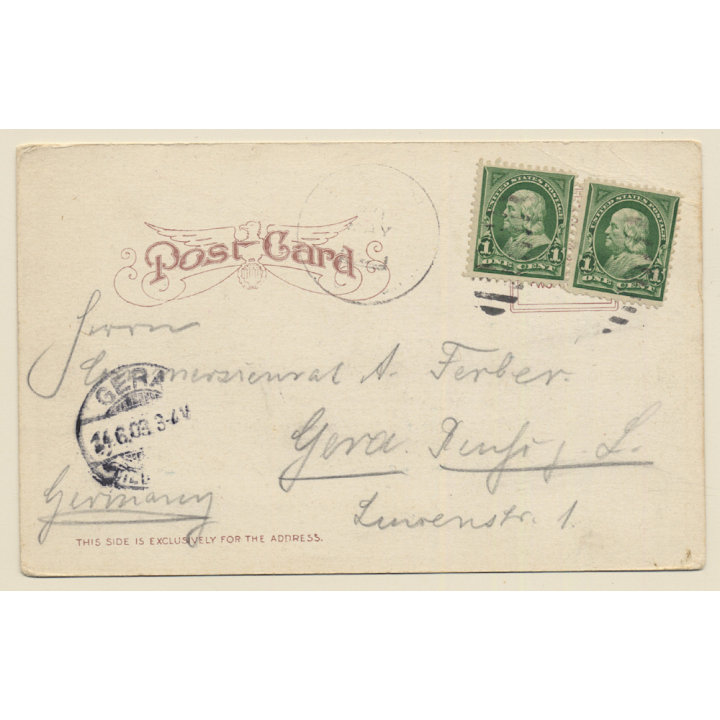 Post Card
UNITED STATES POSTAGE
1 1
ONE CENT
UNITED STATES POSTAGE
1 1
ONE CENT
Herrn
Commerzienrat A. Ferber.
GERA
14.6.03.3-4N
Gera. j. L.
Germany
1.
THIS SIDE IS EXCLUSIVELY FOR THE ADDRESS.